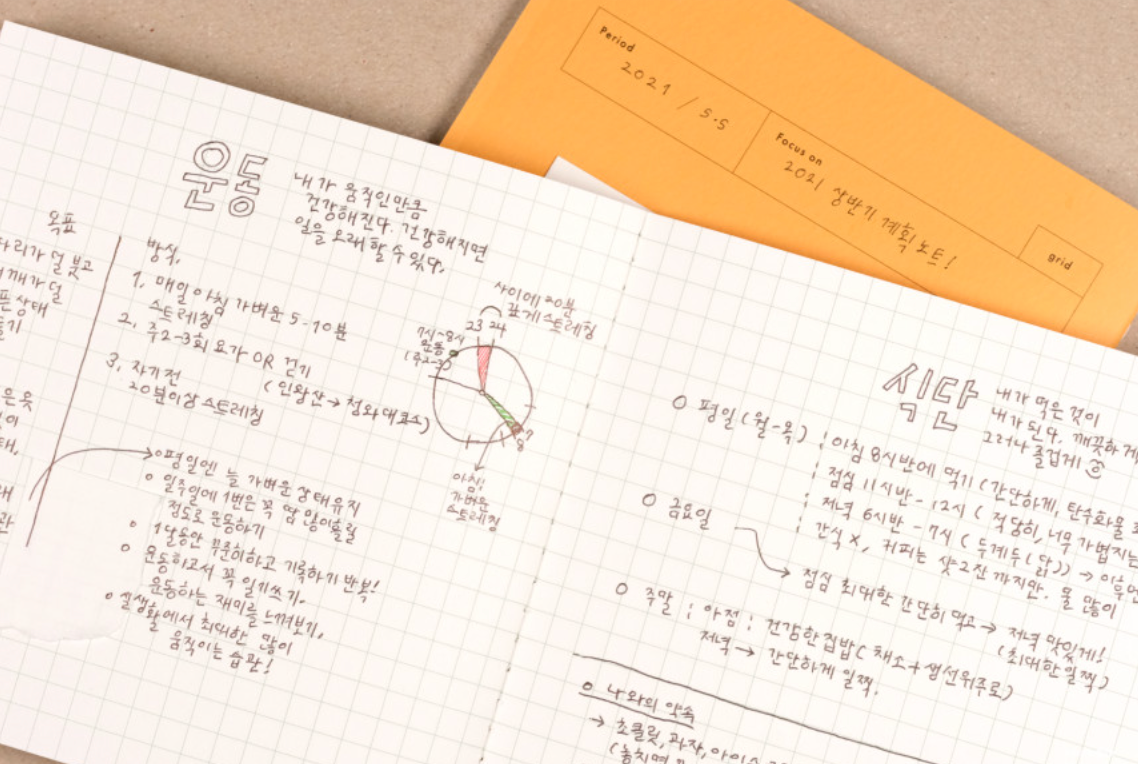 Period
2021 / 5.5
Focus on
2021 상반기 계획 노트!
grid
운동
내가 움직인만큼
건강해진다. 건강해지면
일을 오래 할 수 있다.
목표
다리가 덜 붓고
어깨가 덜
상태
방식,
1. 매일 아침 가벼운 5-10분
스트레칭
2. 주2-3회 요가 OR 걷기
(인왕산→청와대코스)
3. 자기전
20분이상 스트레칭
사이에 20분
깊게 스트레칭
23 24
7시-8시
운동
(주2-3)
7
8
아침!
가벼운
스트레칭
평일엔 늘 가벼운 상태유지
일주일에 1번은 꼭 땀 많이흘릴
정도로 운동하기
1달동안 꾸준히하고 기록하기 반복!
운동하고서 꼭 일기쓰기.
운동하는 재미를 느껴보기,
실생활에서 최대한 많이
움직이는 습관!
식단
내가 먹은 것이
내가 된다. 깨끗하게,
그러나 즐겁게
평일(월-목)
아침 8시반에 먹기(간단하게, 탄수화물
점심 11시반-12시( 적당히, 너무 가볍지는
저녁 6시반-7시(두계두(닭))→이후엔
간식 x, 커피는 샷2잔 까지만. 물 많이
금요일
점심 최대한 간단히 먹고→저녁 맛있게!
(최대한일찍)
주말 : 아점 : 건강한집밥(채소+생선위주로)
저녁→ 간단하게 일찍.
나와의 약속
→ 초콜릿, 과자,